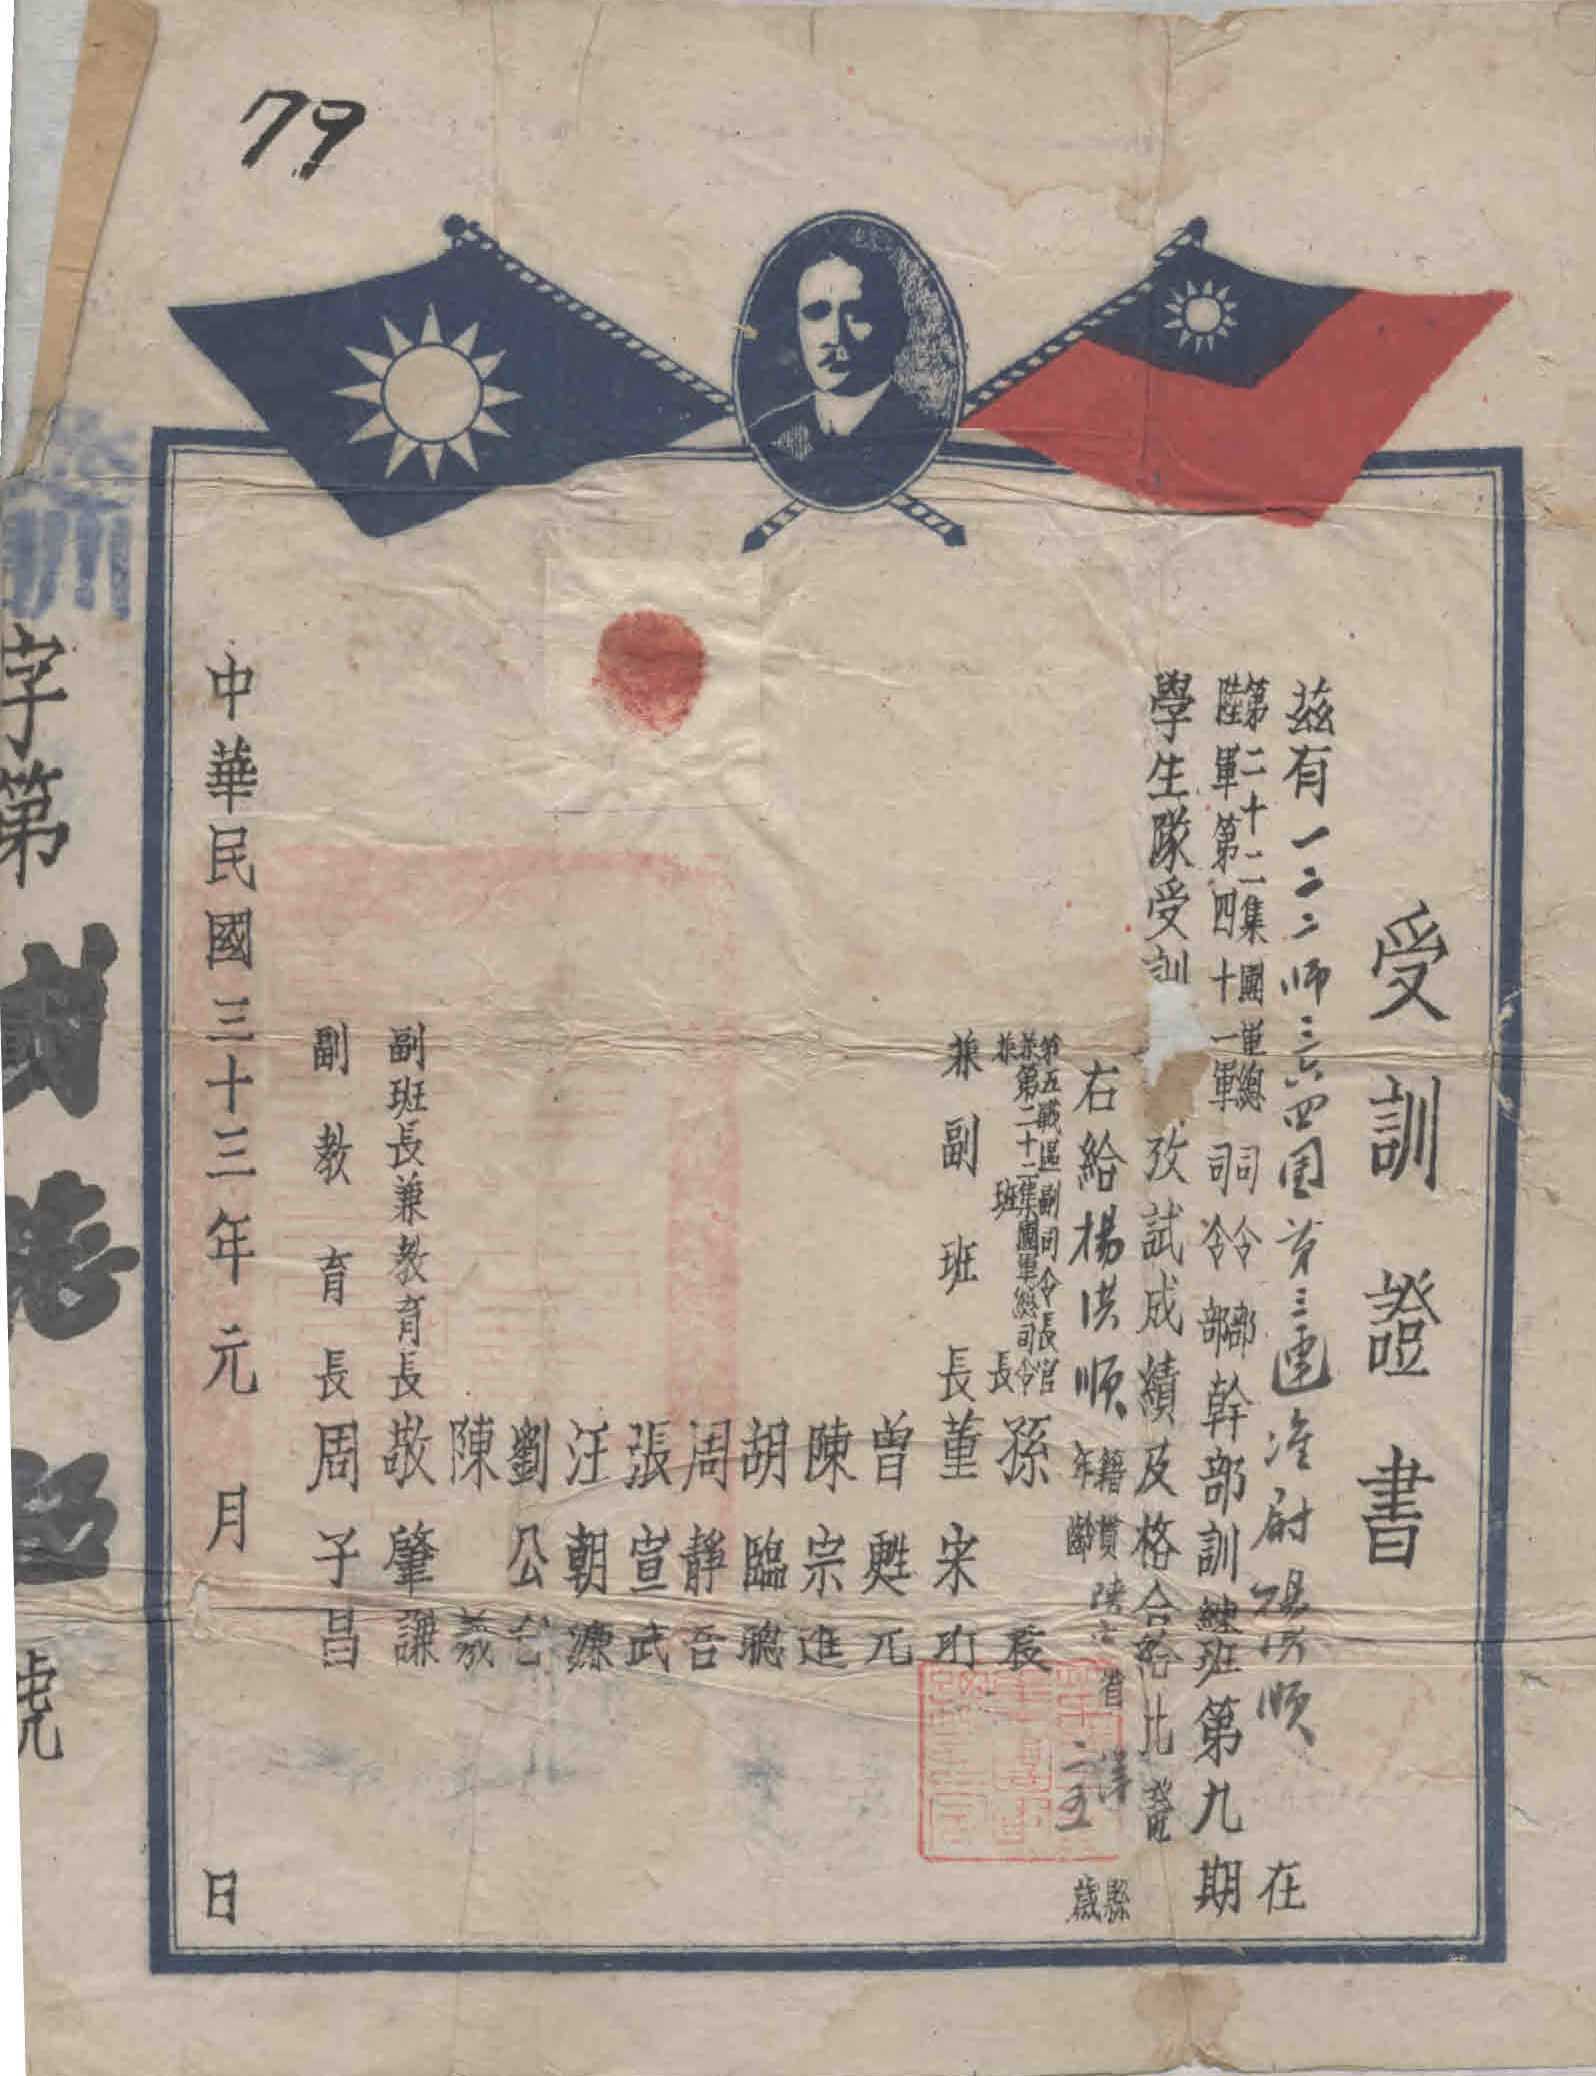 79
受訓證書
茲有一二二师三六四团第三連准尉楊洪順在
第二十二集團軍總司令部
陸軍第四十一軍司令部幹部訓練班第九期
學生隊受訓
攷試成績及格合給比證
右給楊洪順
籍貫陝
省
洋
縣
年齡
二五
歲
第五戰區副司令長官
兼第二十二集團軍總司令
兼班長孫震
兼副班長董宋珩
曾甦元
陳宗進
胡臨聰
周靜吾
張宣武
汪朝濂
劉公台
陳義
副班長兼教育長敬肇謙
副教育長周子昌
中華民國三十三年元月日
訓
字第
號